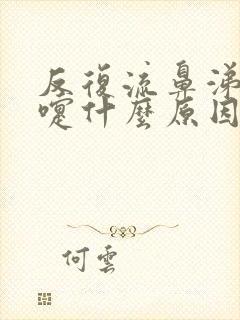 反復流鼻涕打噴
嚏什麼原因
何雲